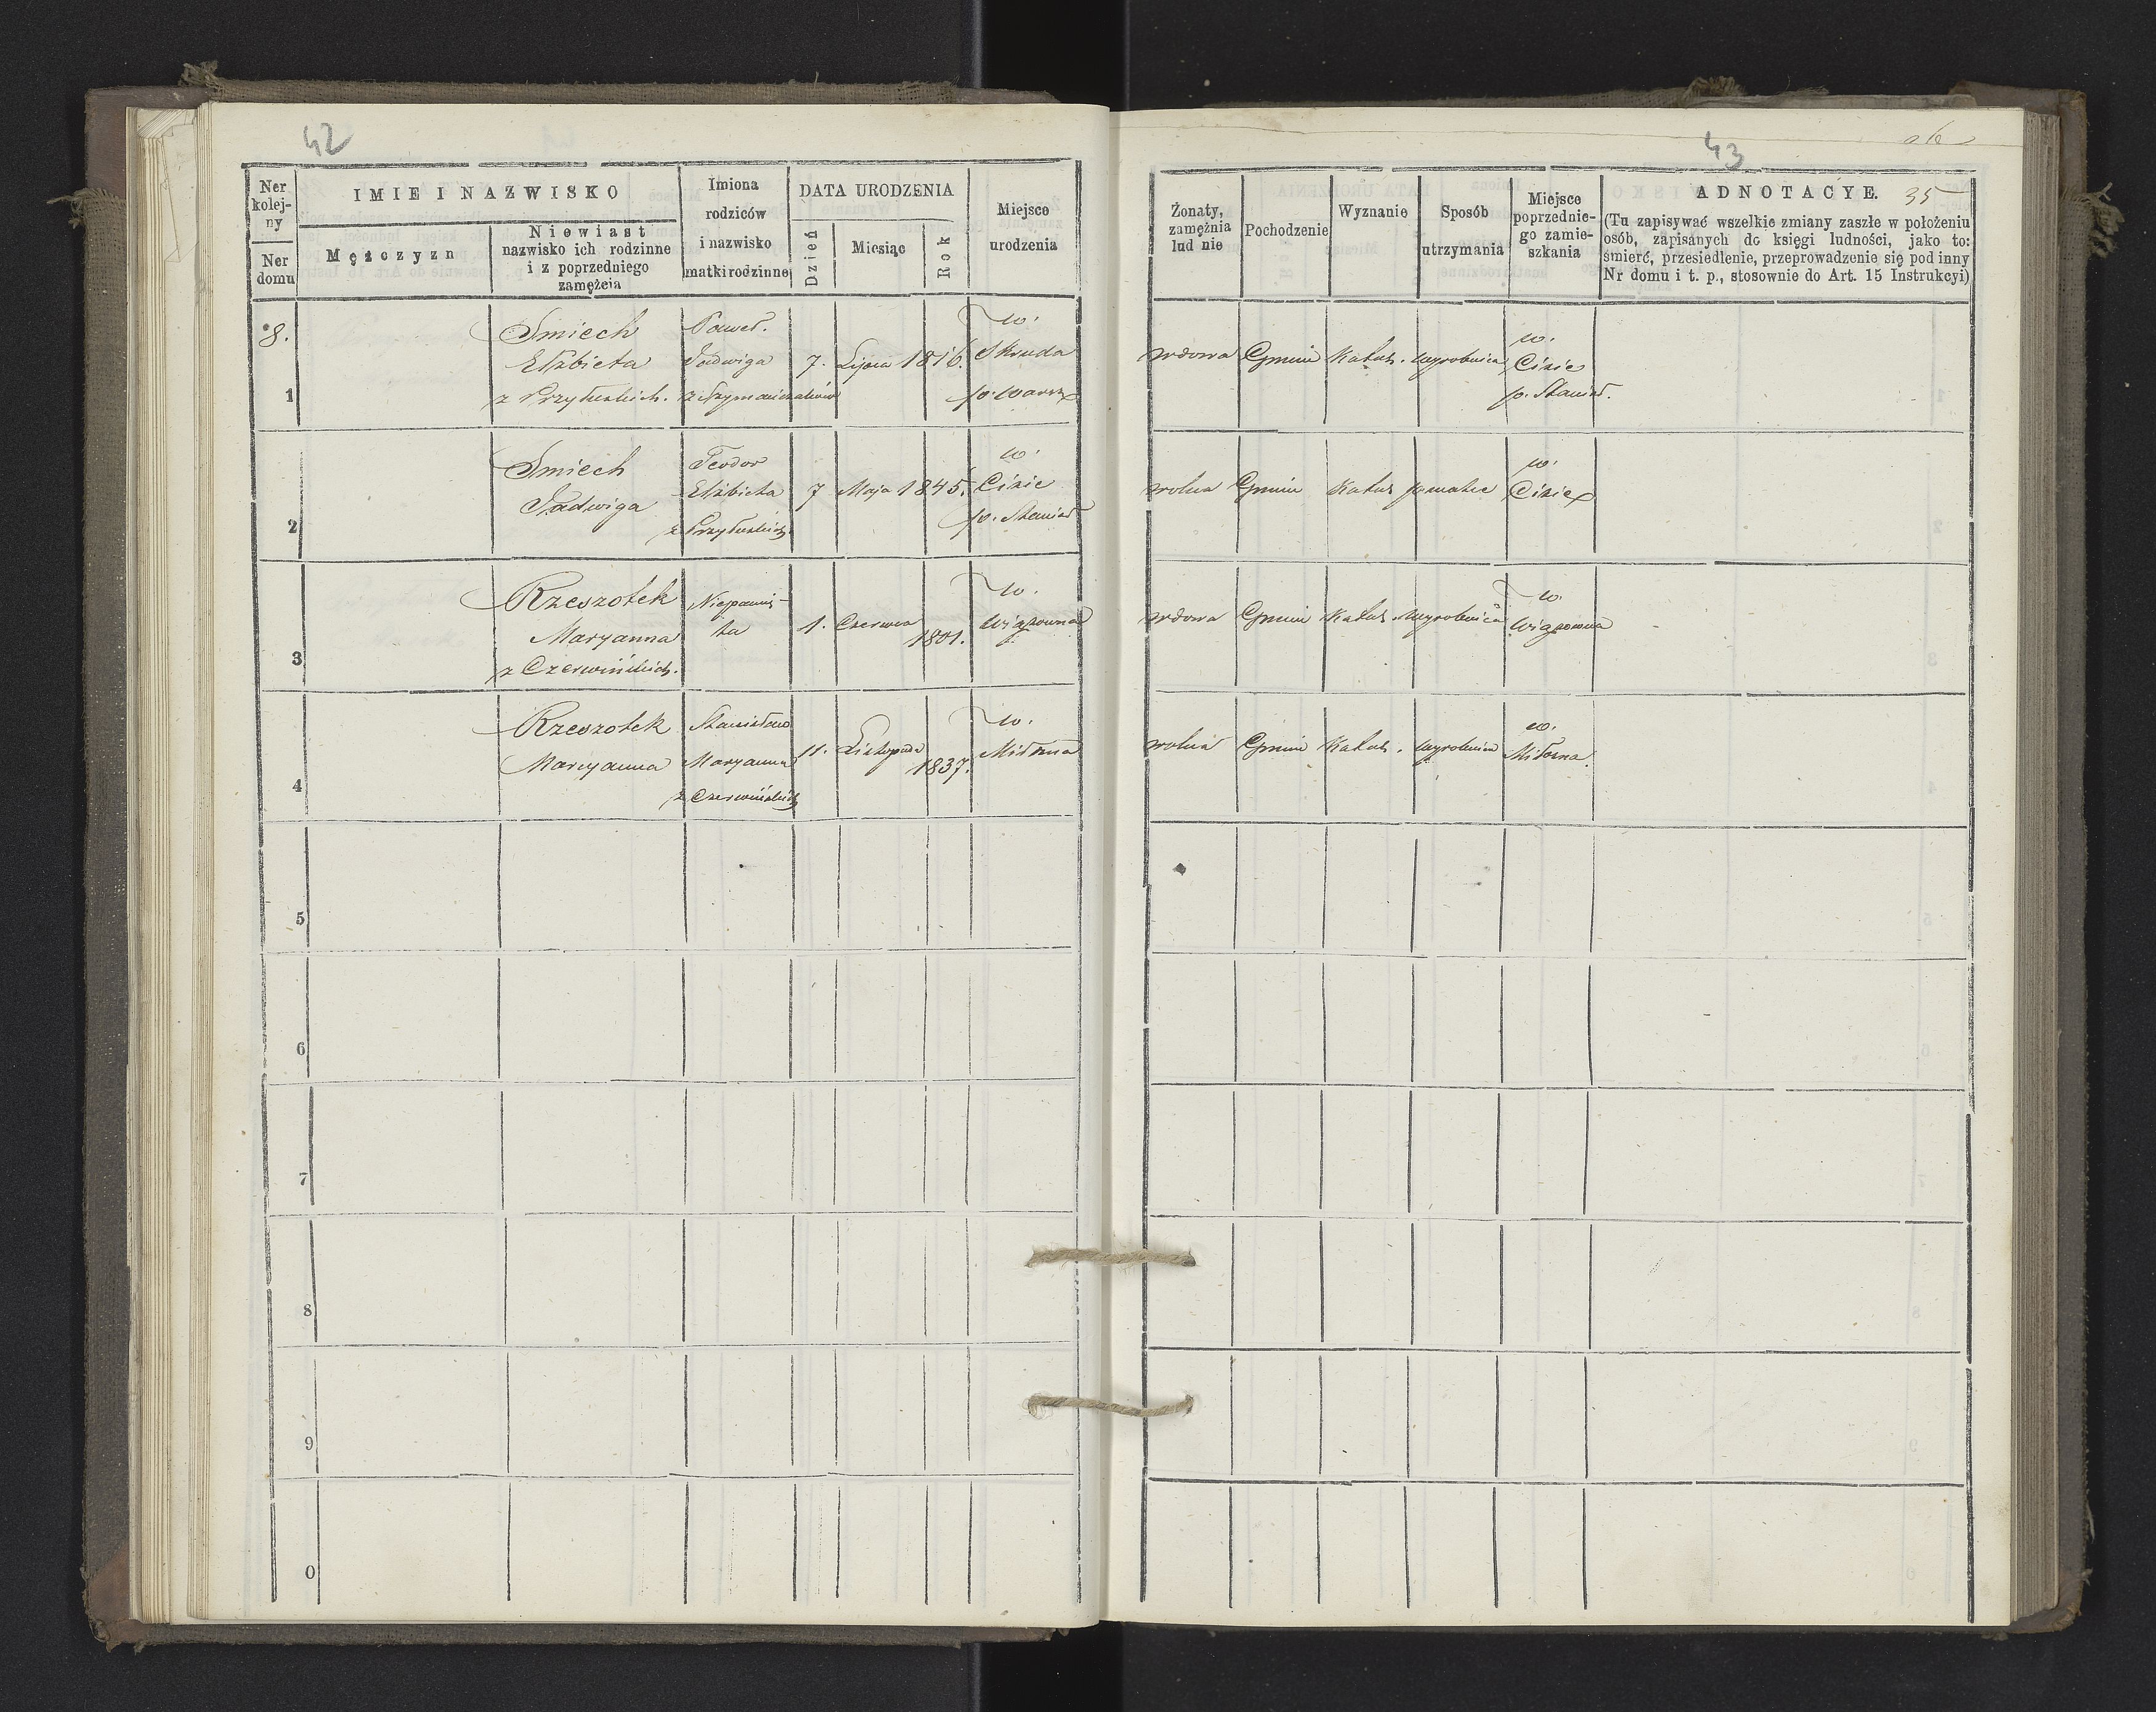 42
Ner kolejny
Ner domu
IMIE I NAZWISKO
Mężczyzn
Niewiast
nazwisko ich rodzinne
i z poprzedniego
zamężcia
Imiona
rodziców
i nazwisko
matki rodzinne
DATA URODZENIA
Dzień
Miesiąc
Rok
Miejsce
urodzenia
8.
1
Smiech
Elżbieta
z Przyłuskich.
Paweł.
Jadwiga
z Szymańczaków
7.
Lipca
1816.
w.
Skruda
p. Warsz
2
Smiech
Jadwiga
Teodor
Elżbieta
z Przyłuskich
7
Maja
1845.
w.
Cisie
p. Stanisł
3
Rzeszotek
Maryanna
z Czerwińskich.
Niepamię-
ta
1.
Czerwca
1801.
w.
Wiązowna
4
Rzeszotek
Maryanna
Stanisław
Maryanna
z Czerwińskich
11.
Listopada
1837.
w.
Miłosna
5
6
7
8
9
0
43
35
Żonaty,
zamężnia
lud nie
Pochodzenie
Wyznanie
Sposób
utrzymania
Miejsce
poprzednie-
go zamie-
szkania
ADNOTACYE.
(Tu zapisywać wszelkie zmiany zaszłe w położeniu
osób, zapisanych do księgi ludności, jako to:
śmierć, przesiedlenie, przeprowadzenie się pod inny
Nr domu i t. p., stosownie do Art. 15 Instrukcyi)
wdowa
Gmin
Katol.
wyrobnica
w.
Cisie
p. Stanisł.
wolna
Gmin
Katol
przy matce
w.
Cisie
wdowa
Gmin
Katol
wyrobnica
w.
Wiązowna
wolna
Gmin
Katol.
wyrobnica
w.
Miłosna.